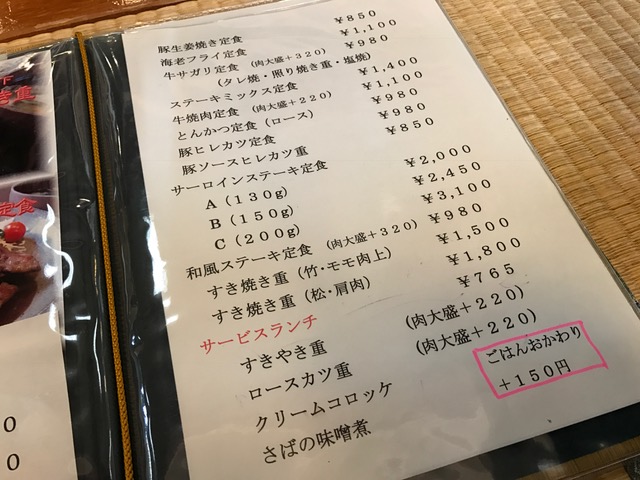 豚生姜焼き定食 ¥850
海老フライ定食 ¥1,100
牛サガリ定食 (肉大盛+320) ¥980
(タレ焼・照り焼き重・塩焼)
ステーキミックス定食 ¥1,400
牛焼肉定食 (肉大盛+220) ¥1,100
とんかつ定食(ロース) ¥980
豚ヒレカツ定食 ¥980
豚ソースヒレカツ重 ¥850
サーロインステーキ定食
A(130g) ¥2,000
B(150g) ¥2,450
C(200g) ¥3,100
和風ステーキ定食 (肉大盛+320) ¥980
すき焼き重(竹・モモ肉上) ¥1,500
すき焼き重(松・肩肉) ¥1,800
サービスランチ ¥765
すきやき重 (肉大盛+220)
ロースカツ重 (肉大盛+220)
クリームコロッケ
さばの味噌煮
ごはんおかわり
+150円
き重
定食
0
0